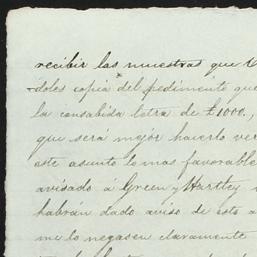 recibir las muestras que
doles copia del pedimento que
la consabida letra de £1000.,
que será mejor hacerlo ver
este asunto lo mas favorable
avisado á Green y Hartley
habrán dado aviso de esto a
me lo negasen claramente